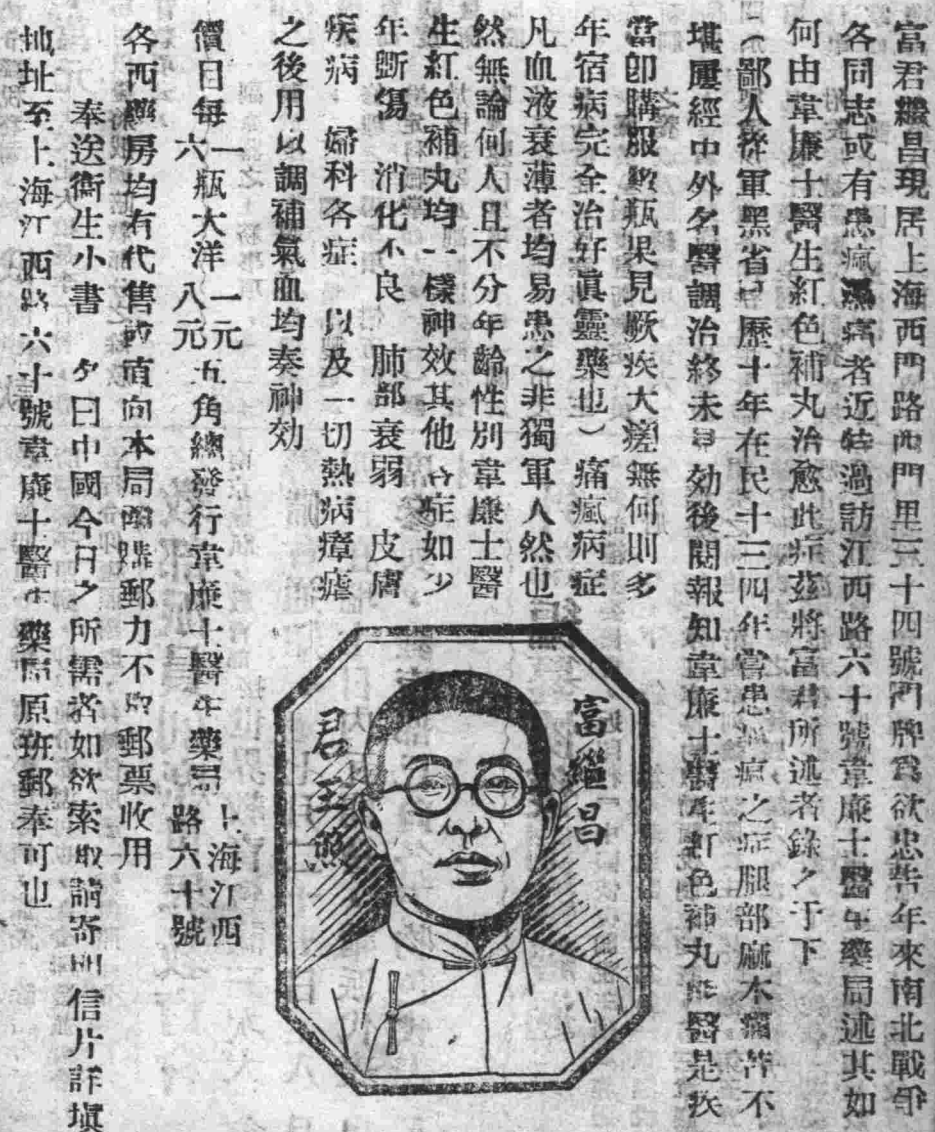 富君繼昌現居上海西門路西門里三十四號門牌爲欲忠告年來南北戰爭
各同志或有患瘋濕痛者近特過訪江西路六十號韋廉士醫生藥局述其如
何由韋廉士醫生紅色補丸治愈此症茲將富君所述者錄之于下
(鄙人從軍黑省已歷十年在民十三四年嘗患瘋之症腿部麻木痛苦不
堪屢經中外名醫調治終未見効後閱報知韋廉士醫生紅色補丸能醫是疾
當卽購服數瓶果見厥疾大瘥無何則多
年宿病完全治好眞靈藥也)痛瘋病症
凡血液衰薄者均易患之非獨軍人然也
然無論何人且不分年齡性別韋廉士醫
生紅色補丸均一樣神效其他各症如少
年斷傷 消化不良 肺部衰弱 皮膚
疾病 婦科各症 以及一切熱病瘴瘧
之後用以調補氣血均奏神効
價目每一瓶大洋一元五角總發行韋廉士醫生藥局上海江西
六 八元 路六十號
各西藥房均有代售或直向本局函購郵力不取郵票收用
奉送衛生小書 夕曰中國今日之所需者如欲索取請寄明信片詳塡
地址至上海江西路六十號韋廉士醫生藥局原班郵奉可也
富繼昌
君玉照